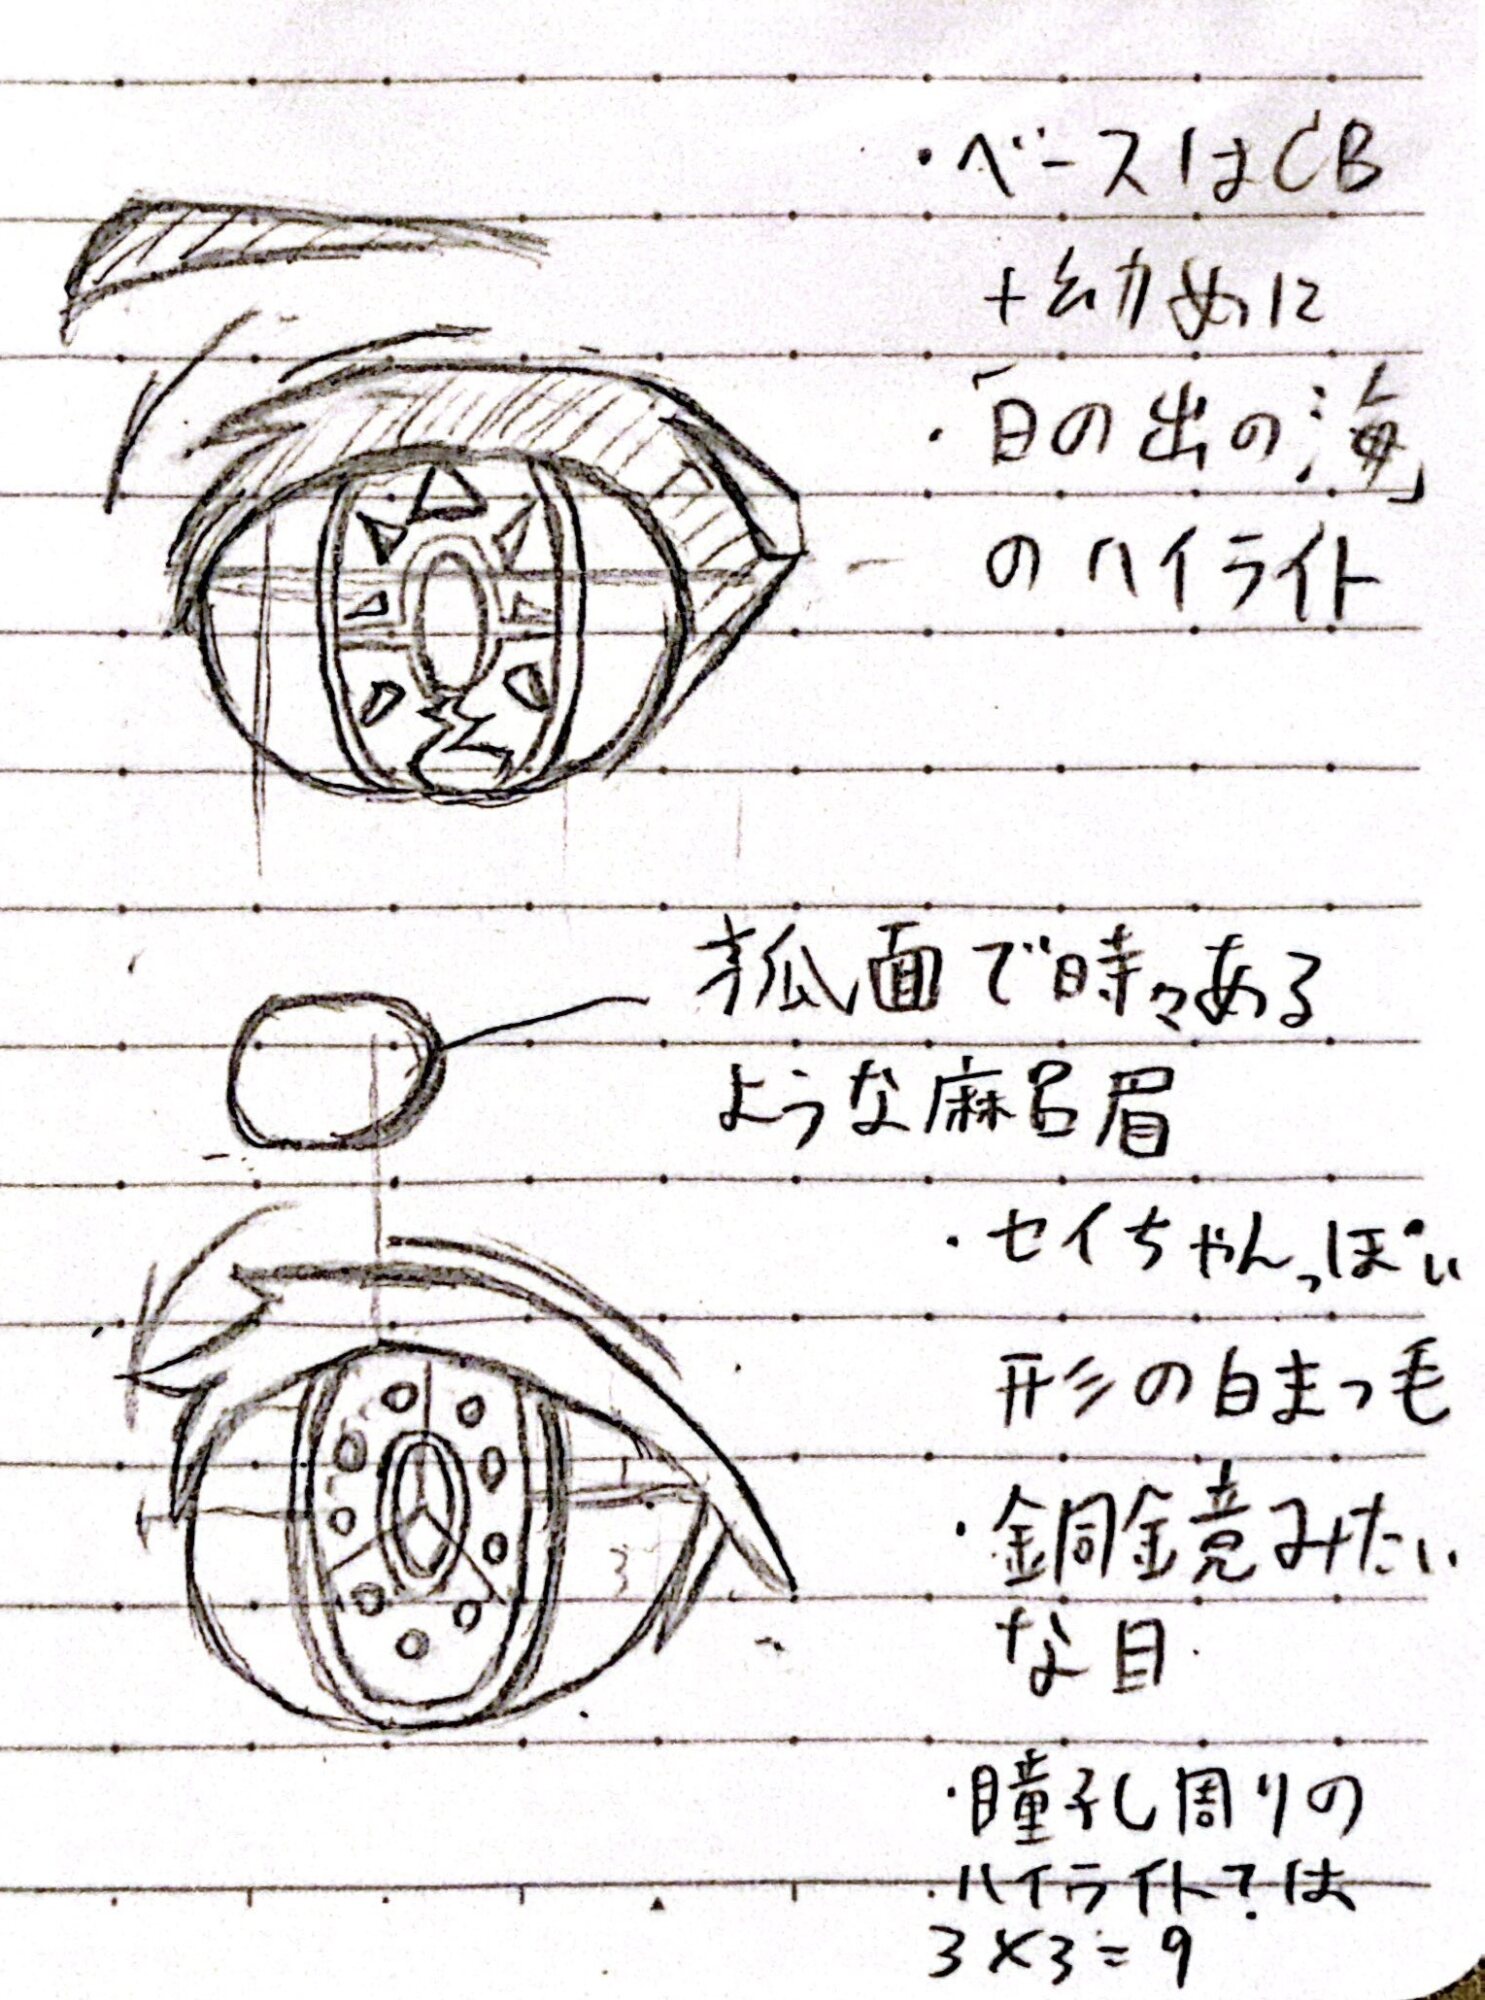 ・ベースはCB
+幼めに
・「日の出の海」
のハイライト
狐面で時々ある
ような麻呂眉
・セイちゃんっぽい
形の白まつ毛
・銅鏡みたい
な目
・瞳孔周りの
ハイライト?は
3×3=9